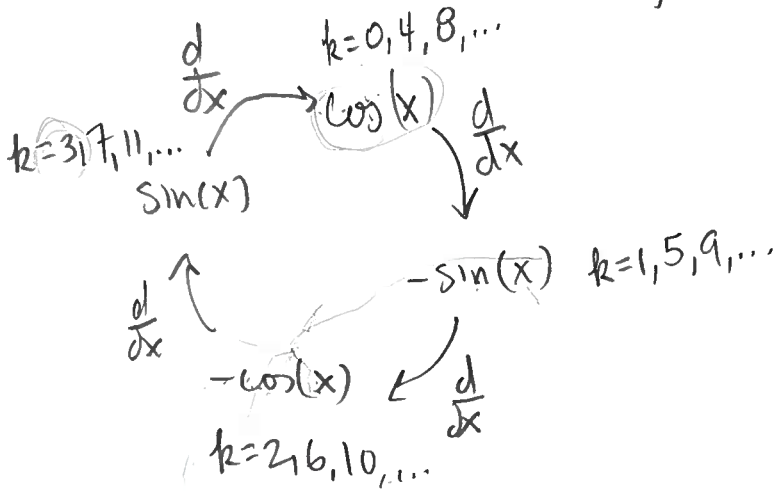 k=0,4,8,...
d/dx
cos(x)
d/dx
k=3,7,11,...
sin(x)
-sin(x) k=1,5,9,...
d/dx
-cos(x)
d/dx
k=2,6,10,...